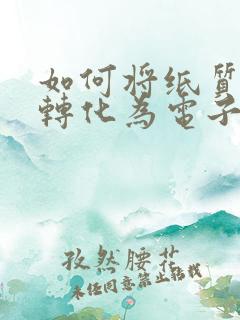 如何将纸質
轉化為電子
孜然腰花
未经同意禁止轉載